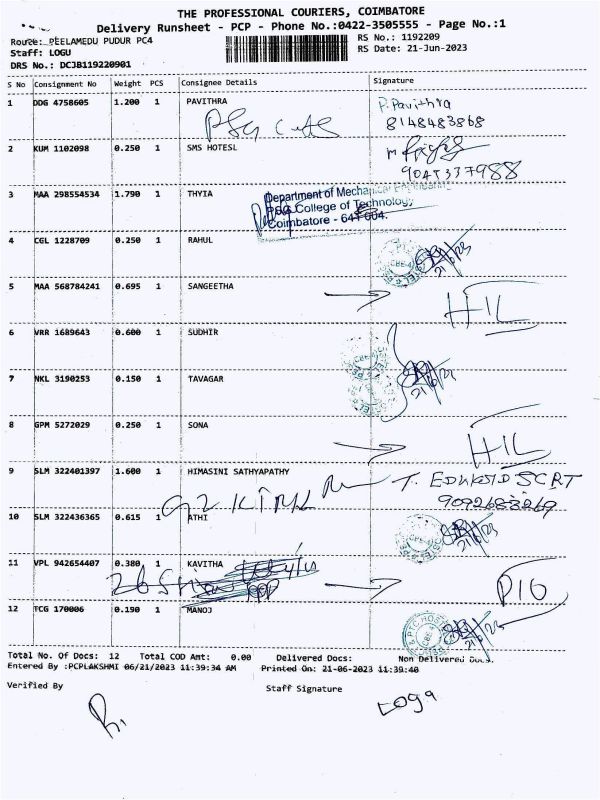 THE PROFESSIONAL COURIERS, COIMBATORE
Delivery Runsheet - PCP - Phone No.:0422-3505555 - Page No.:1
Route: PEELAMEDU PUDUR PC4
RS No.: 1192209
Staff: LOGU
RS Date: 21-Jun-2023
DRS No.: DCJB119220901
S No Consignment No Weight PCS Consignee Details Signature
1 DDG 4758605 1.200 1 PAVITHRA P. Pavithra
8148483868
2 KUM 1102098 0.250 1 SMS HOTESL
9047337988
3 MAA 298554534 1.790 1 THYIA
Department of Mechanical Engineering
PSG College of Technology
Coimbatore - 641 004.
4 CGL 1228709 0.250 1 RAHUL
21/6/23
5 MAA 568784241 0.695 1 SANGEETHA
HIL
6 VRR 1689643 0.600 1 SUDHIR
7 NKL 3190253 0.150 1 TAVAGAR
21/6/23
8 GPM 5272029 0.250 1 SONA
HIL
9 SLM 322401397 1.600 1 HIMASINI SATHYAPATHY
9092688269
10 SLM 322436365 0.615 1 ATHI
21/6/23
11 VPL 942654407 0.380 1 KAVITHA
12 TCG 170006 0.190 1 MANOJ
Total No. Of Docs: 12 Total COD Amt: 0.00 Delivered Docs: Non Delivered Docs.
Entered By :PCPLAKSHMI 06/21/2023 11:39:34 AM Printed On: 21-06-2023 11:39:40
Verified By Staff Signature
Loga